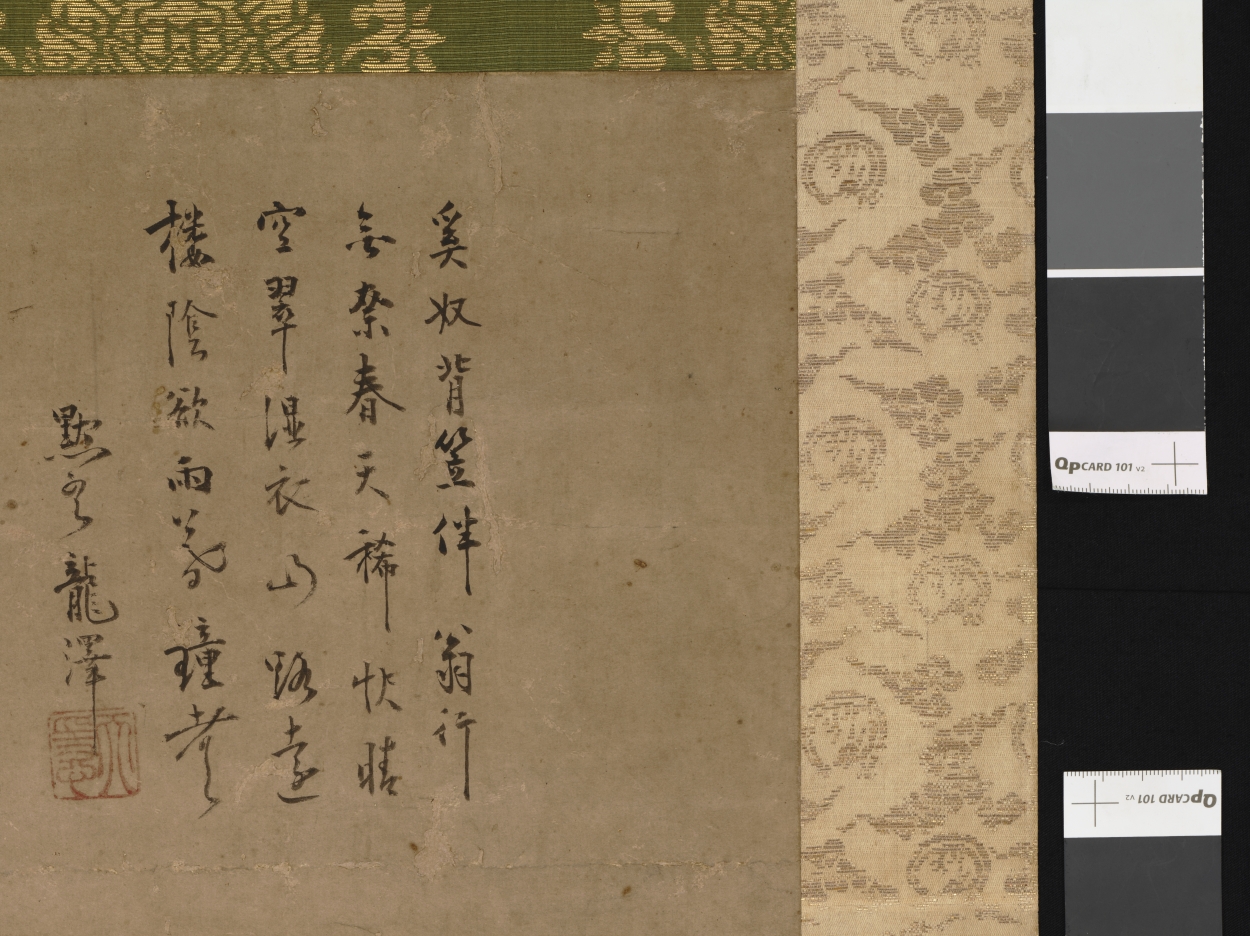 奚奴背笠伴翁行
無奈春天稀快晴
空翠湿衣山路遠
楼陰欲雨暮鐘声
黙雲龍澤
QPCARD 101 v2
QPCARD 101 v2